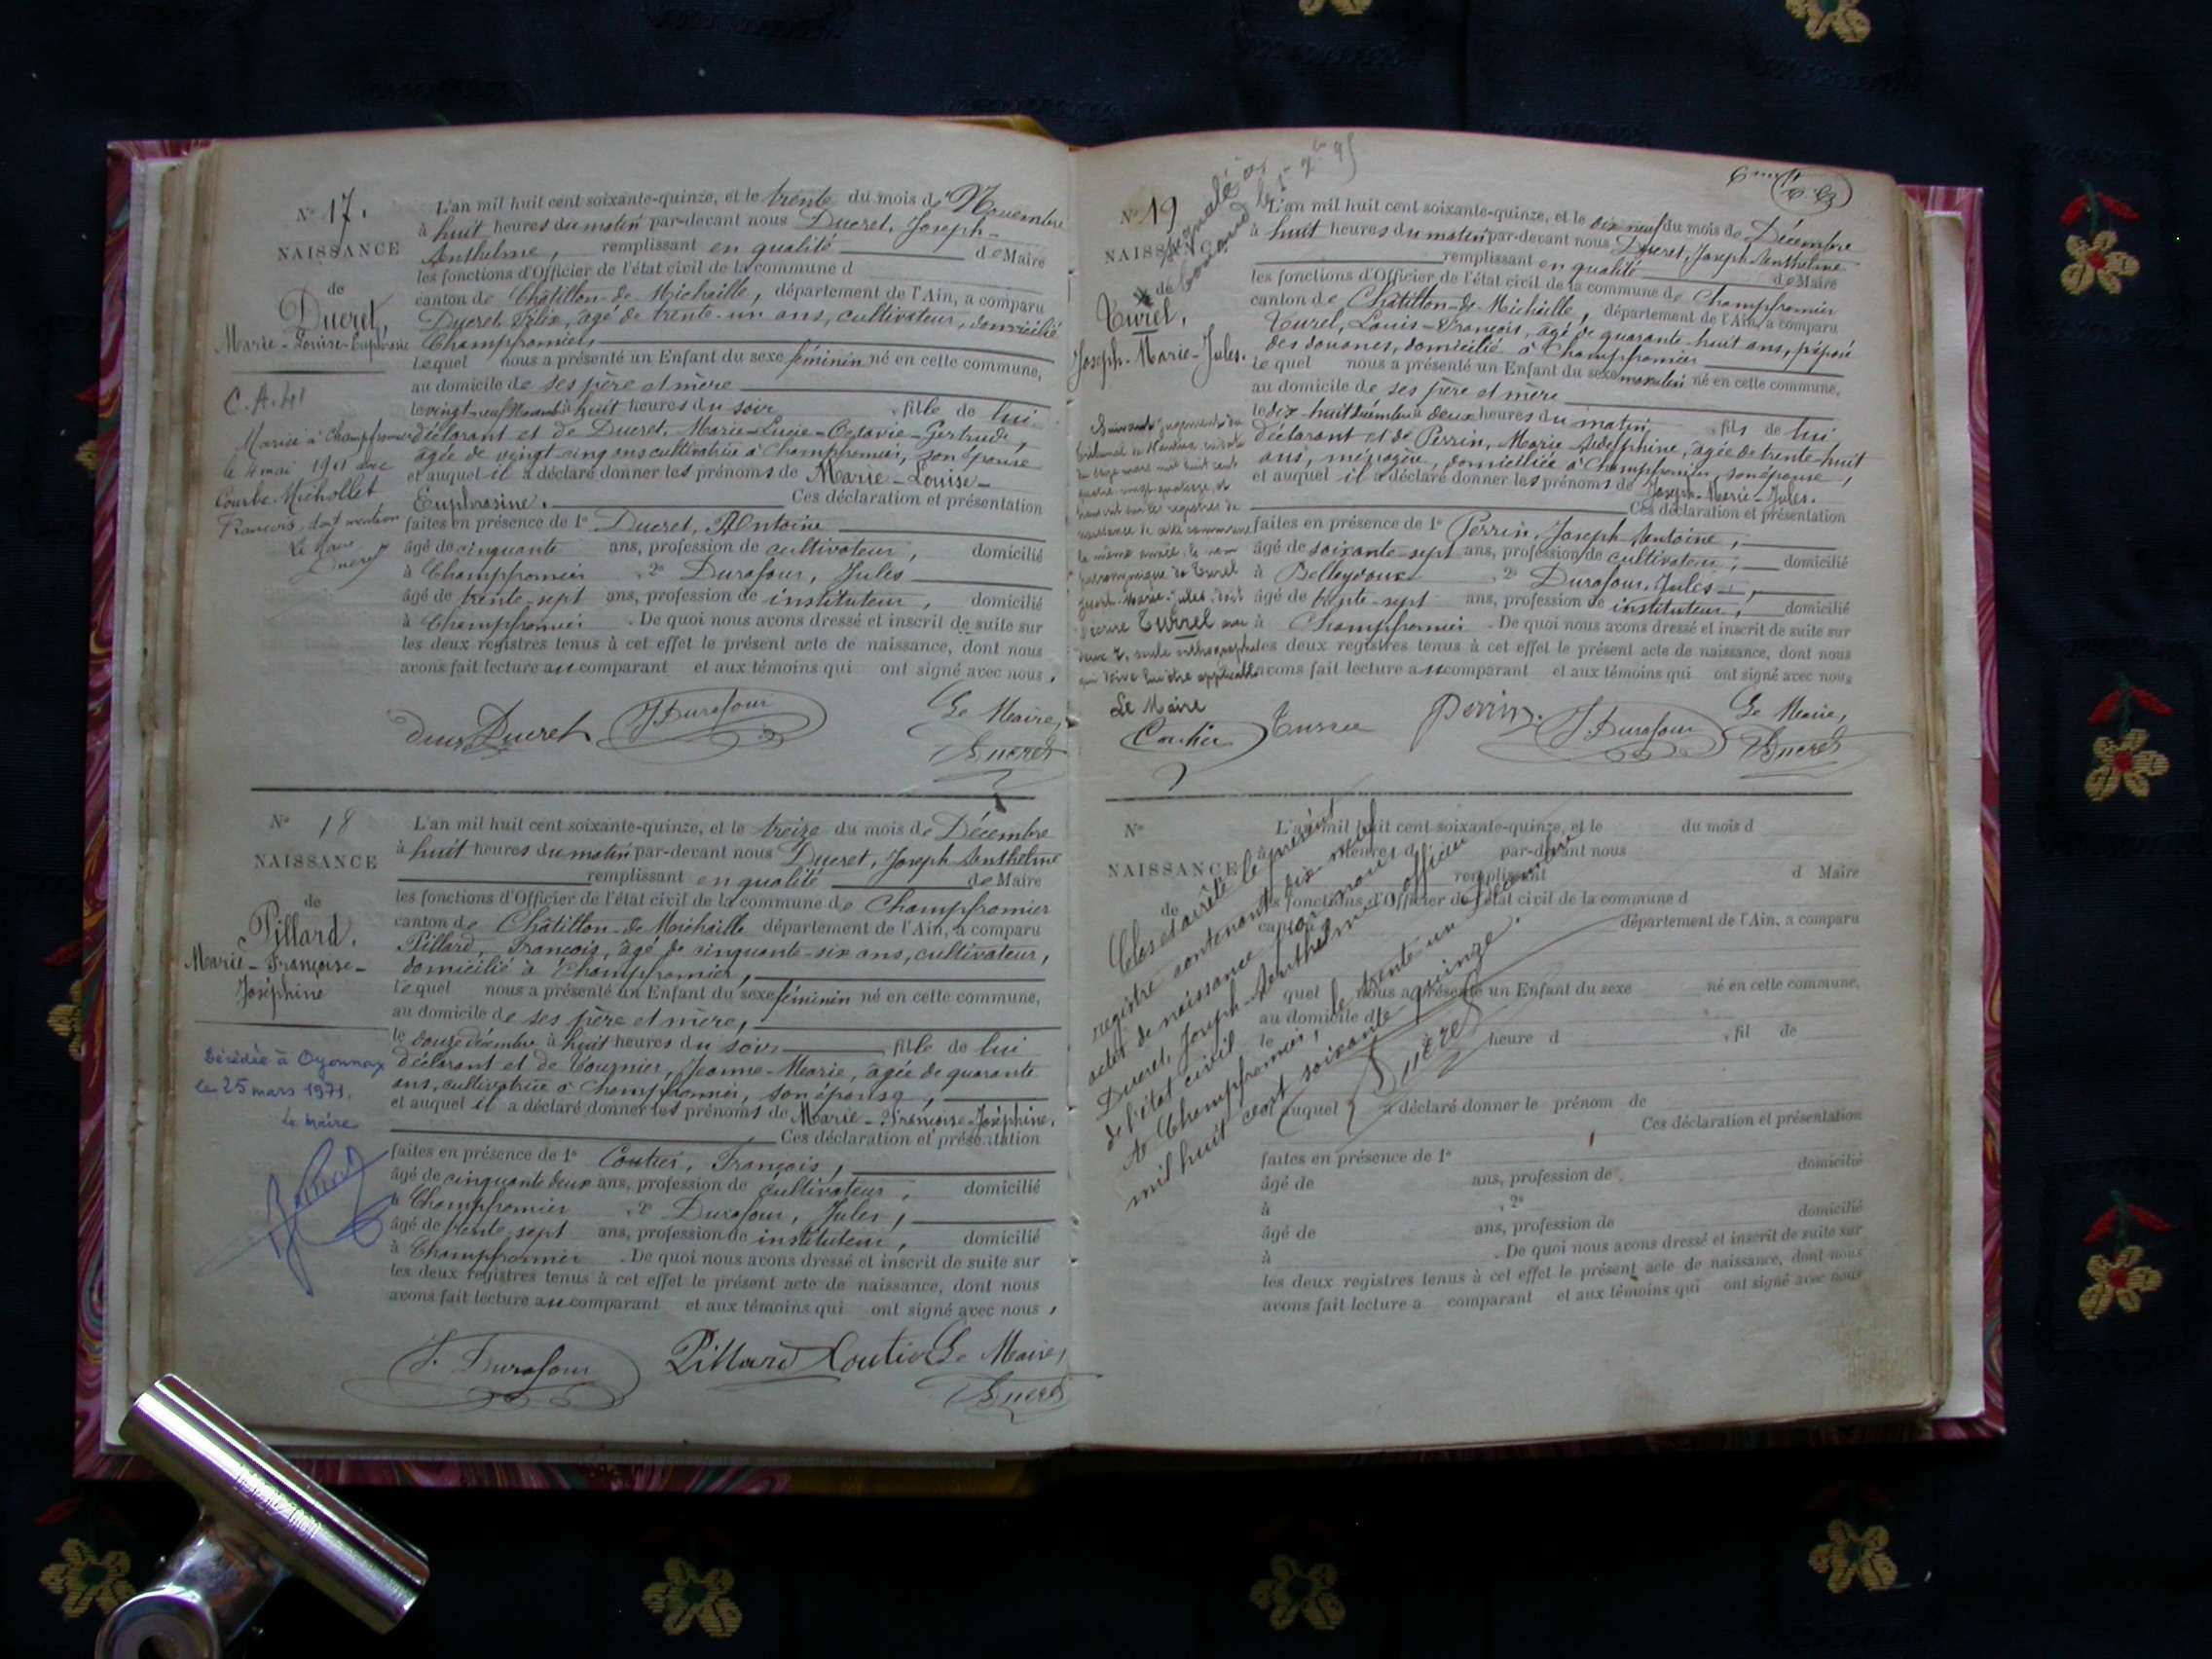 N° 17.
NAISSANCE
de
Ducret,
Marie-Louise-Euphrosine
C.A. 41
Mariée à Champfromier
le 4 mai 1901 avec
Courbe-Michollet
François, dont mention
Le Maire
Ducret
L'an mil huit cent soixante-quinze, et le trente du mois de Novembre
à huit heures du matin par-devant nous Ducret, Joseph-
Anthelme, remplissant en qualité de Maire
les fonctions d'Officier de l'état civil de la commune d
canton de Châtillon-de-Michaille, département de l'Ain, a comparu
Ducret Félix, âgé de trente-un ans, cultivateur, domicilié
Champfromier,
Lequel nous a présenté un Enfant du sexe féminin né en cette commune,
au domicile de ses père et mère
le vingt-neuf Novembre à huit heures du soir, fille de lui
déclarant et de Ducret, Marie-Lucie-Octavie-Gertrude,
âgée de vingt-cinq ans cultivatrice à Champfromier, son épouse
et auquel il a déclaré donner les prénoms de Marie-Louise-
Euphrosine. Ces déclaration et présentation
faites en présence de 1° Ducret, Antoine
âgé de cinquante ans, profession de cultivateur, domicilié
à Champfromier, 2° Durafour, Jules
âgé de trente-sept ans, profession de instituteur, domicilié
à Champfromier. De quoi nous avons dressé et inscrit de suite sur
les deux registres tenus à cet effet le présent acte de naissance, dont nous
avons fait lecture au comparant et aux témoins qui ont signé avec nous.
Ducret J. Durafour Le Maire,
Ducret
N° 18
NAISSANCE
de
Pillard.
Marie-Françoise-
Joséphine
Décédée à Oyonnax
le 25 mars 1971.
Le Maire
L'an mil huit cent soixante-quinze, et le treize du mois de Décembre
à huit heures du matin par-devant nous Ducret, Joseph Anthelme
remplissant en qualité de Maire
les fonctions d'Officier de l'état civil de la commune de Champfromier
canton de Châtillon-de-Michaille département de l'Ain, a comparu
Pillard, François, âgé de cinquante-six ans, cultivateur,
domicilié à Champfromier,
Lequel nous a présenté un Enfant du sexe féminin né en cette commune,
au domicile de ses père et mère,
le douze décembre à huit heures du soir, fille de lui
déclarant et de Tournier, Jeanne-Marie, âgée de quarante
ans, cultivatrice à Champfromier, son épouse,
et auquel il a déclaré donner les prénoms de Marie-Françoise-Joséphine.
Ces déclaration et présentation
faites en présence de 1° Coutier, François,
âgé de cinquante deux ans, profession de cultivateur, domicilié
à Champfromier, 2° Durafour, Jules,
âgé de trente-sept ans, profession de instituteur, domicilié
à Champfromier. De quoi nous avons dressé et inscrit de suite sur
les deux registres tenus à cet effet le présent acte de naissance, dont nous
avons fait lecture au comparant et aux témoins qui ont signé avec nous,
J. Durafour Pillard Coutier Le Maire,
Ducret
N° 19
NAISSANCE
de
Turel,
Joseph-Marie-Jules.
Suivant jugement du
tribunal de Nantua
mil huit cent
quatre-vingt-quatorze, et
sur les registres de
naissance de cette commune
la même année, le nom
patronymique de Turel
Joseph-Marie-Jules, doit
s'écrire Turrel avec
deux r, seule orthographe
qui doive lui être applicable
Le Maire
Coutier
L'an mil huit cent soixante-quinze, et le dix-neuf du mois de Décembre
à huit heures du matin par-devant nous Ducret, Joseph Anthelme
remplissant en qualité de Maire
les fonctions d'Officier de l'état civil de la commune de Champfromier
canton de Châtillon-de-Michaille, département de l'Ain, a comparu
Turel, Louis-François, âgé de quarante-huit ans, préposé
des douanes, domicilié à Champfromier
Le quel nous a présenté un Enfant du sexe masculin né en cette commune,
au domicile de ses père et mère
le dix-huit Décembre à deux heures du matin, fils de lui
déclarant et de Perrin, Marie Adelphine, âgée de trente-huit
ans, ménagère, domiciliée à Champfromier, son épouse,
et auquel il a déclaré donner les prénoms de Joseph-Marie-Jules.
Ces déclaration et présentation
faites en présence de 1° Perrin, Joseph Antoine,
âgé de soixante-sept ans, profession de cultivateur, domicilié
à Belleydoux, 2° Durafour, Jules,
âgé de trente-sept ans, profession de instituteur, domicilié
à Champfromier. De quoi nous avons dressé et inscrit de suite sur
les deux registres tenus à cet effet le présent acte de naissance, dont nous
avons fait lecture au comparant et aux témoins qui ont signé avec nous
Perrin. J. Durafour Le Maire,
Ducret
N°
NAISSANCE
de
L'an mil huit cent soixante-quinze, et le du mois d
à heures d par-devant nous
remplissant d Maire
les fonctions d'Officier de l'état civil de la commune d
canton département de l'Ain, a comparu
quel nous a présenté un Enfant du sexe né en cette commune,
au domicile d
le heure d , fil de
et auquel a déclaré donner le prénom de
Ces déclaration et présentation
faites en présence de 1°
âgé de ans, profession de domicilié
à , 2°
âgé de ans, profession de domicilié
à . De quoi nous avons dressé et inscrit de suite sur
les deux registres tenus à cet effet le présent acte de naissance, dont nous
avons fait lecture a comparant et aux témoins qui ont signé avec nous
Clos et arrêté le présent
registre contenant dix neuf
actes de naissance par nous
Ducret, Joseph-Anthelme officier
de l'état civil
A Champfromier, le trente un Décembre
mil huit cent soixante quinze.
Ducret